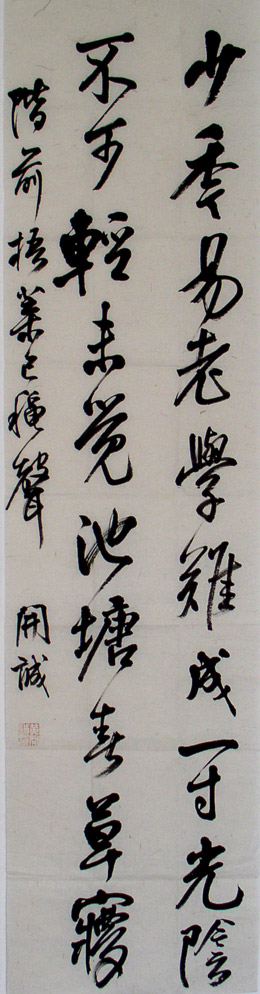 少季易老學難成一寸光陰
不可輕未覺池塘春草夢
階前梧葉已穐聲
開誠